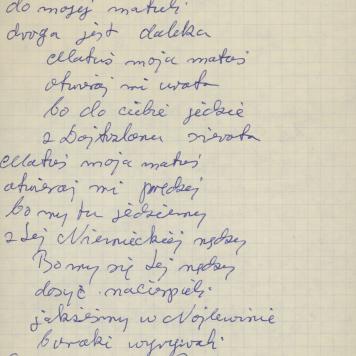 do mojej matuli
droga jest daleka
Matuś moja matuś
otwieraj mi wrota
bo do ciebie jedzie
z Dojtszlanu sierota
Matuś moja matuś
otwieraj mi prędzej
bo my tu jedziemy
z tej Niemieckiej nędzy
Bo my się tej nędzy
dosyć nacierpieli
jakżeśmy w Nojlewinie
buraki wyrywali